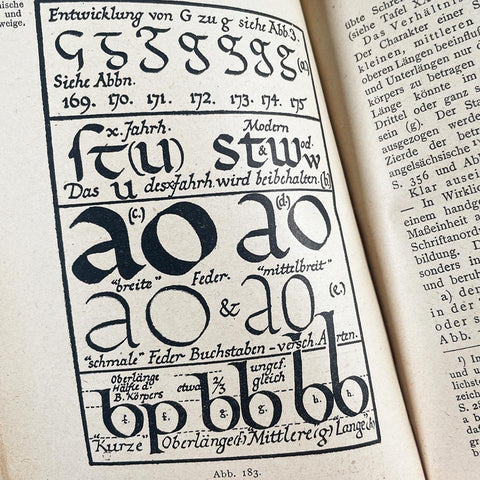 und
weige.
Entwicklung von G zu g siehe Abb. 3.
G g g g g g g (a)
Siehe Abbn.
169. 170. 171. 172. 173. 174. 175
x. Jahrh. Modern
ſt (u) st & w od. w
Das u des x Jahrh. wird beibehalten. (b)
(c.) (d.)
ao ao
"breite" Feder- "mittelbreit"
ao & ao (e.)
"schmale" Feder Buchstaben - versch. Arten.
Oberlänge
Hälfte d.
B. Körpers
etwa 2/3
ungef.
gleich
bp bb bb
f. f. g. g. h. h.
"Kurze" Oberlänge (f) "Mittlere (g) "Lange" (h)
Abb. 183.
übte Schre
(siehe Tafel X
Das Verhältni
Der Charakter einer
kleinen, mittleren
oberen Längen beeinflu
und Unterlängen nur d
körpers zu betragen
Länge könnte im
Drittel oder ganz s
sein (g). Der Sta
ausgezogen werden
Zierde der betr
angelsächsische
S. 356 und Abb
Klar ausei
— In Wirklic
einem handge
Maßeinheit a
Schriftanord
bildung. D
sonders in
und beruh
a) den
in der
oder s
Abb.
¹) In
und
lichste
zeich
S. 28
a)
d